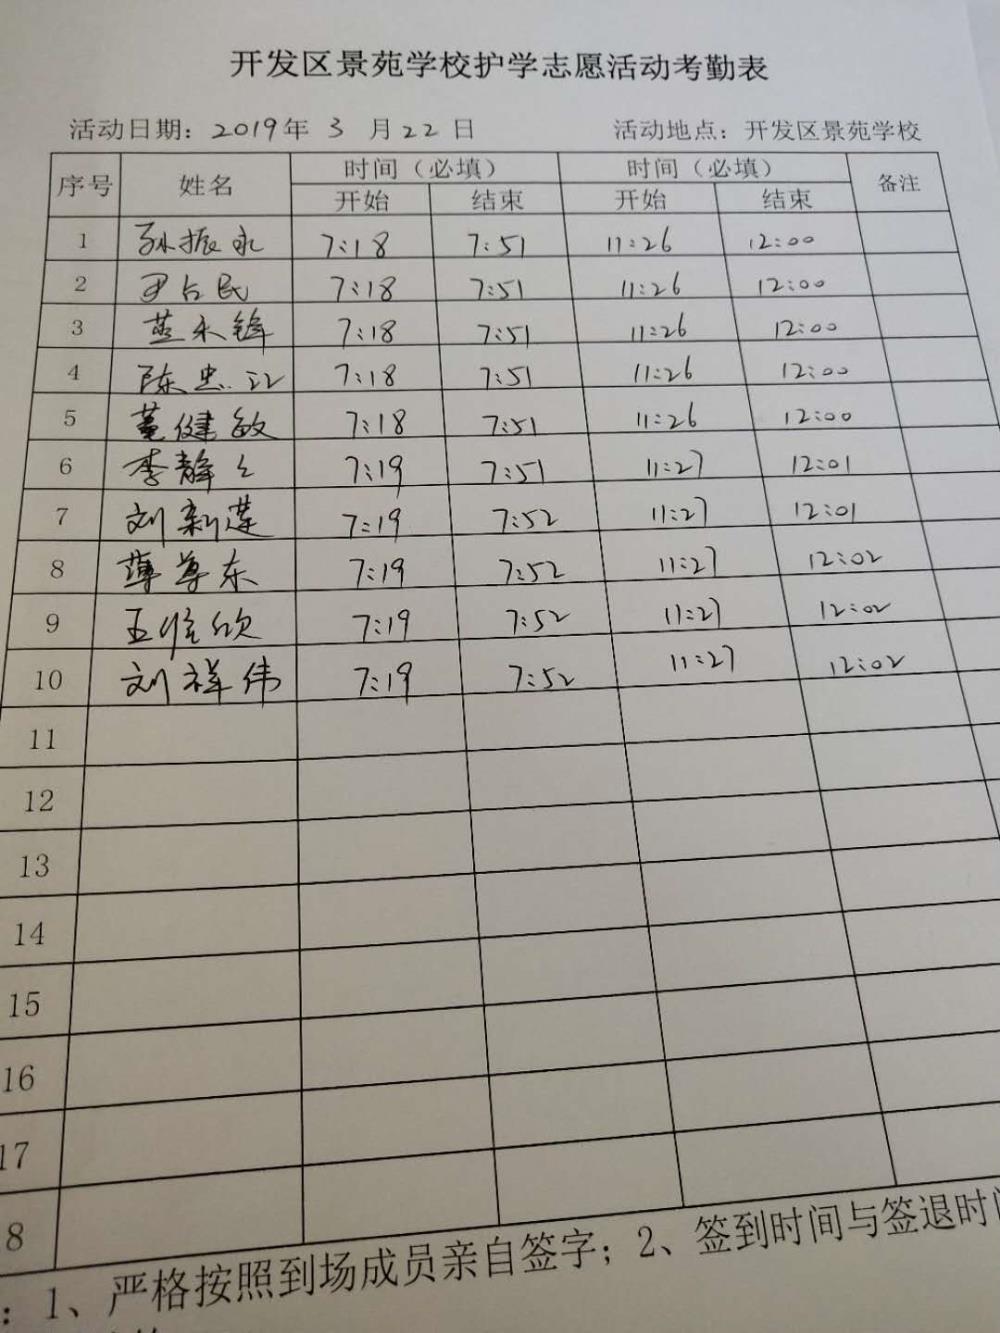 开发区景苑学校护学志愿活动考勤表
活动日期：2019年 3 月22日 活动地点：开发区景苑学校
序号 姓名 时间（必填） 时间（必填） 备注
开始 结束 开始 结束
1 孙振永 7:18 7:51 11:26 12:00
2 尹占民 7:18 7:51 11:26 12:00
3 燕永锋 7:18 7:51 11:26 12:00
4 陈忠江 7:18 7:51 11:26 12:00
5 董健敏 7:18 7:51 11:26 12:00
6 李静 7:19 7:51 11:27 12:01
7 刘新莲 7:19 7:52 11:27 12:01
8 薄尊东 7:19 7:52 11:27 12:02
9 王 欣 7:19 7:52 11:27 12:02
10 刘祥伟 7:19 7:52 11:27 12:02
11
12
13
14
15
16
17
8
：1、严格按照到场成员亲自签字；2、签到时间与签退时间